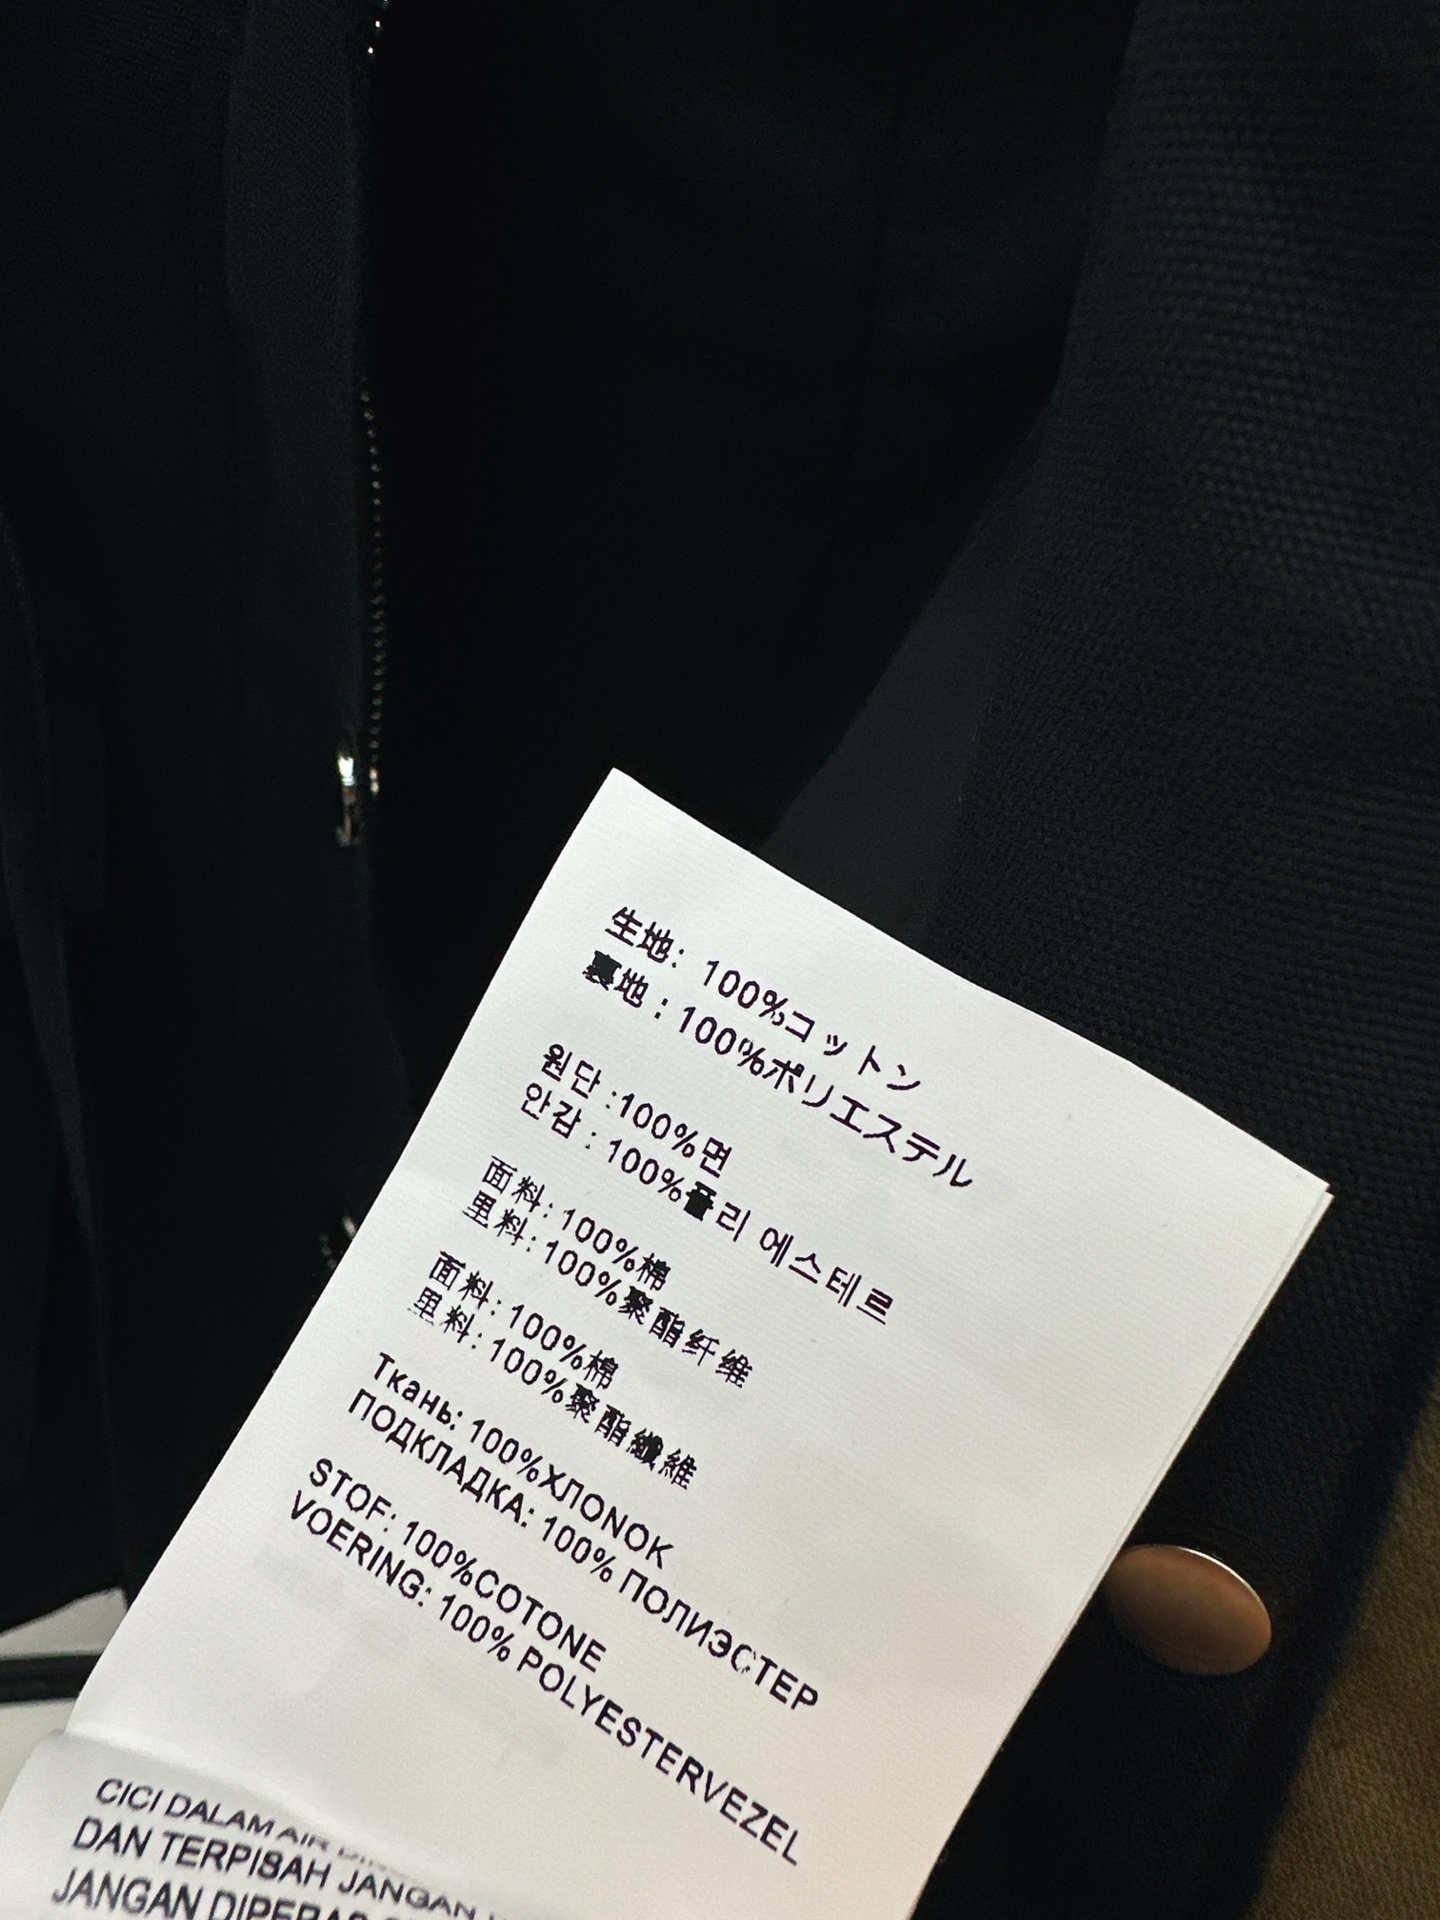 生地: 100%コットン
裏地 : 100%ポリエステル
원단 :100%면
안감 : 100%폴리 에스테르
面料: 100%棉
里料: 100%聚酯纤维
面料: 100%棉
里料: 100%聚酯纖維
Ткань: 100%ХЛОNOK
ПОДКЛАДКА: 100% ПОЛИЭСТЕР
STOF: 100%COTONE
VOERING: 100% POLYESTERVEZEL
CICI DALAM AIR
DAN TERPISAH JANGAN
JANGAN DIPERAS